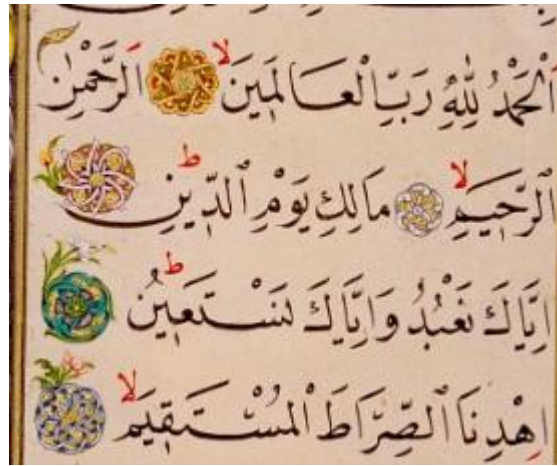 اَلْحَمْدُ لِلّٰهِ رَبِّ الْعَالَمٖينَ ۙ اَلرَّحْمٰنِ
الرَّحٖيمِ ۙ مَالِكِ يَوْمِ الدّٖينِ ۜ ط
اِيَّاكَ نَعْبُدُ وَاِيَّاكَ نَسْتَعٖينُ ط
اِهْدِنَا الصِّرَاطَ الْمُسْتَقٖيمَ ۙ